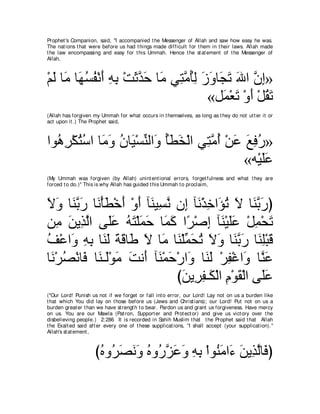 Prophet's Companion, said, "I accompanied the Messenger of Allah and saw how easy he was.
The nations that were before us had things made difficult for them in their laws. Allah made
the law encompassing and easy for this Ummah. Hence the statement of the Messenger of
Allah,
«إِنَّ اللهَ تَجَاوَزَ لِأُمَّتِي مَا حَدَّثَتْ بِهِ أَنْفُسُهَا مَا لَمْ
تَقُلْ أَوْ تَعْمَل»
(Allah has forgiven my Ummah for what occurs in themselves, as long as they do not utter it or
act upon it.) The Prophet said,
«رُفِعَ عَنْ أُمَّتِي الْخَطَأُ وَالنِّسْيَانُ وَمَا اسْتُكْرِهُوا
عَلَيْه»
(My Ummah was forgiven (by Allah) unintentional errors, forgetfulness and what they are
forced to do.)" This is why Allah has guided this Ummah to proclaim,
(رَبَّنَا لاَ تُؤَاخِذْنَآ إِن نَّسِينَآ أَوْ أَخْطَأْنَا رَبَّنَا وَلاَ
تَحْمِلْ عَلَيْنَآ إِصْرًا كَمَا حَمَلْتَهُ عَلَى الَّذِينَ مِن
قَبْلِنَا رَبَّنَا وَلاَ تُحَمِّلْنَا مَا لاَ طَاقَةَ لَنَا بِهِ وَاعْفُ
عَنَّا وَاغْفِرْ لَنَا وَارْحَمْنَآ أَنتَ مَوْلَـنَا فَانْصُرْنَا
عَلَى الْقَوْمِ الْكَـفِرِينَ)
("Our Lord! Punish us not if we forget or fall into error, our Lord! Lay not on us a burden like
that which You did lay on those before us (Jews and Christians); our Lord! Put not on us a
burden greater than we have strength to bear. Pardon us and grant us forgiveness. Have mercy
on us. You are our Mawla (Patron, Supporter and Protector) and give us victory over the
disbelieving people.) 2:286 It is recorded in Sahih Muslim that the Prophet said that Allah
the Exalted said after every one of these supplications, "I shall accept (your supplication)."
Allah's statement,
(فَالَّذِينَ ءَامَنُواْ بِهِ وَعَزَّرُوهُ وَنَصَرُوهُ)